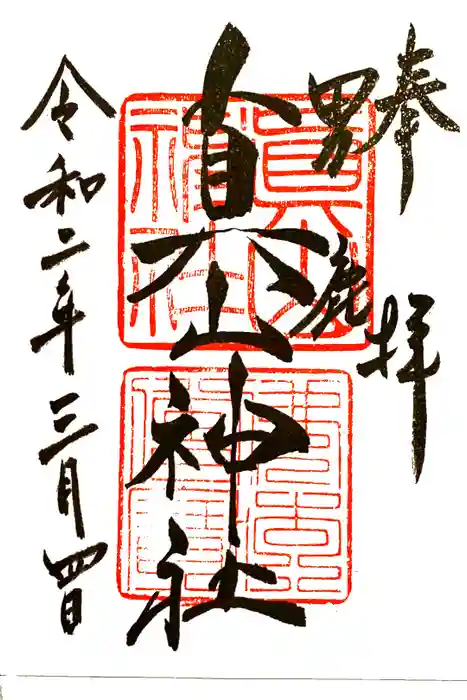 奉拝
男鹿
真山神社
令和二年三月四日
真山
神社